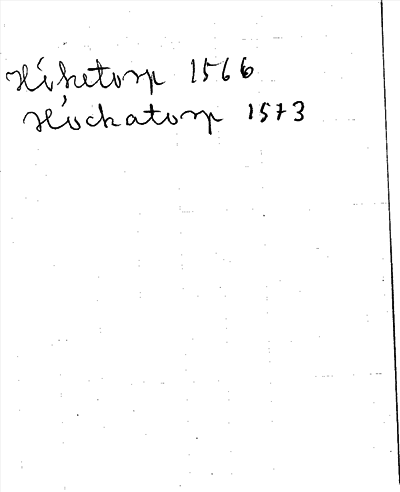 Híketorp 1566
Hockatorp 1573